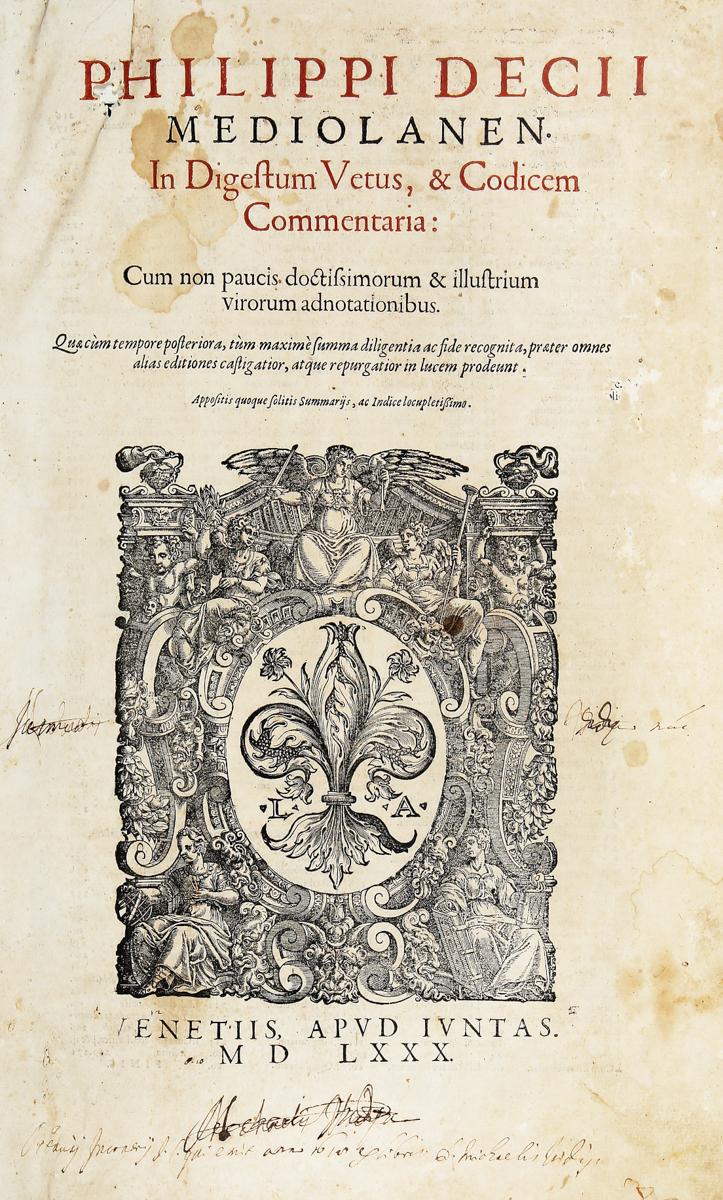 PHILIPPI DECII
MEDIOLANEN.
In Digeſtum Vetus, & Codicem
Commentaria:
Cum non paucis doctiſsimorum & illuſtrium
virorum adnotationibus.
Quæ cùm tempore poſteriora, tùm maximè ſumma diligentia ac fide recognita, præter omnes
alias editiones caſtigatior, atque repurgatior in lucem prodeunt.
Appoſitis quoque ſolitis Summarijs, ac Indice locupletiſsimo.
L A
ENETIIS, APVD IVNTAS.
M D LXXX.